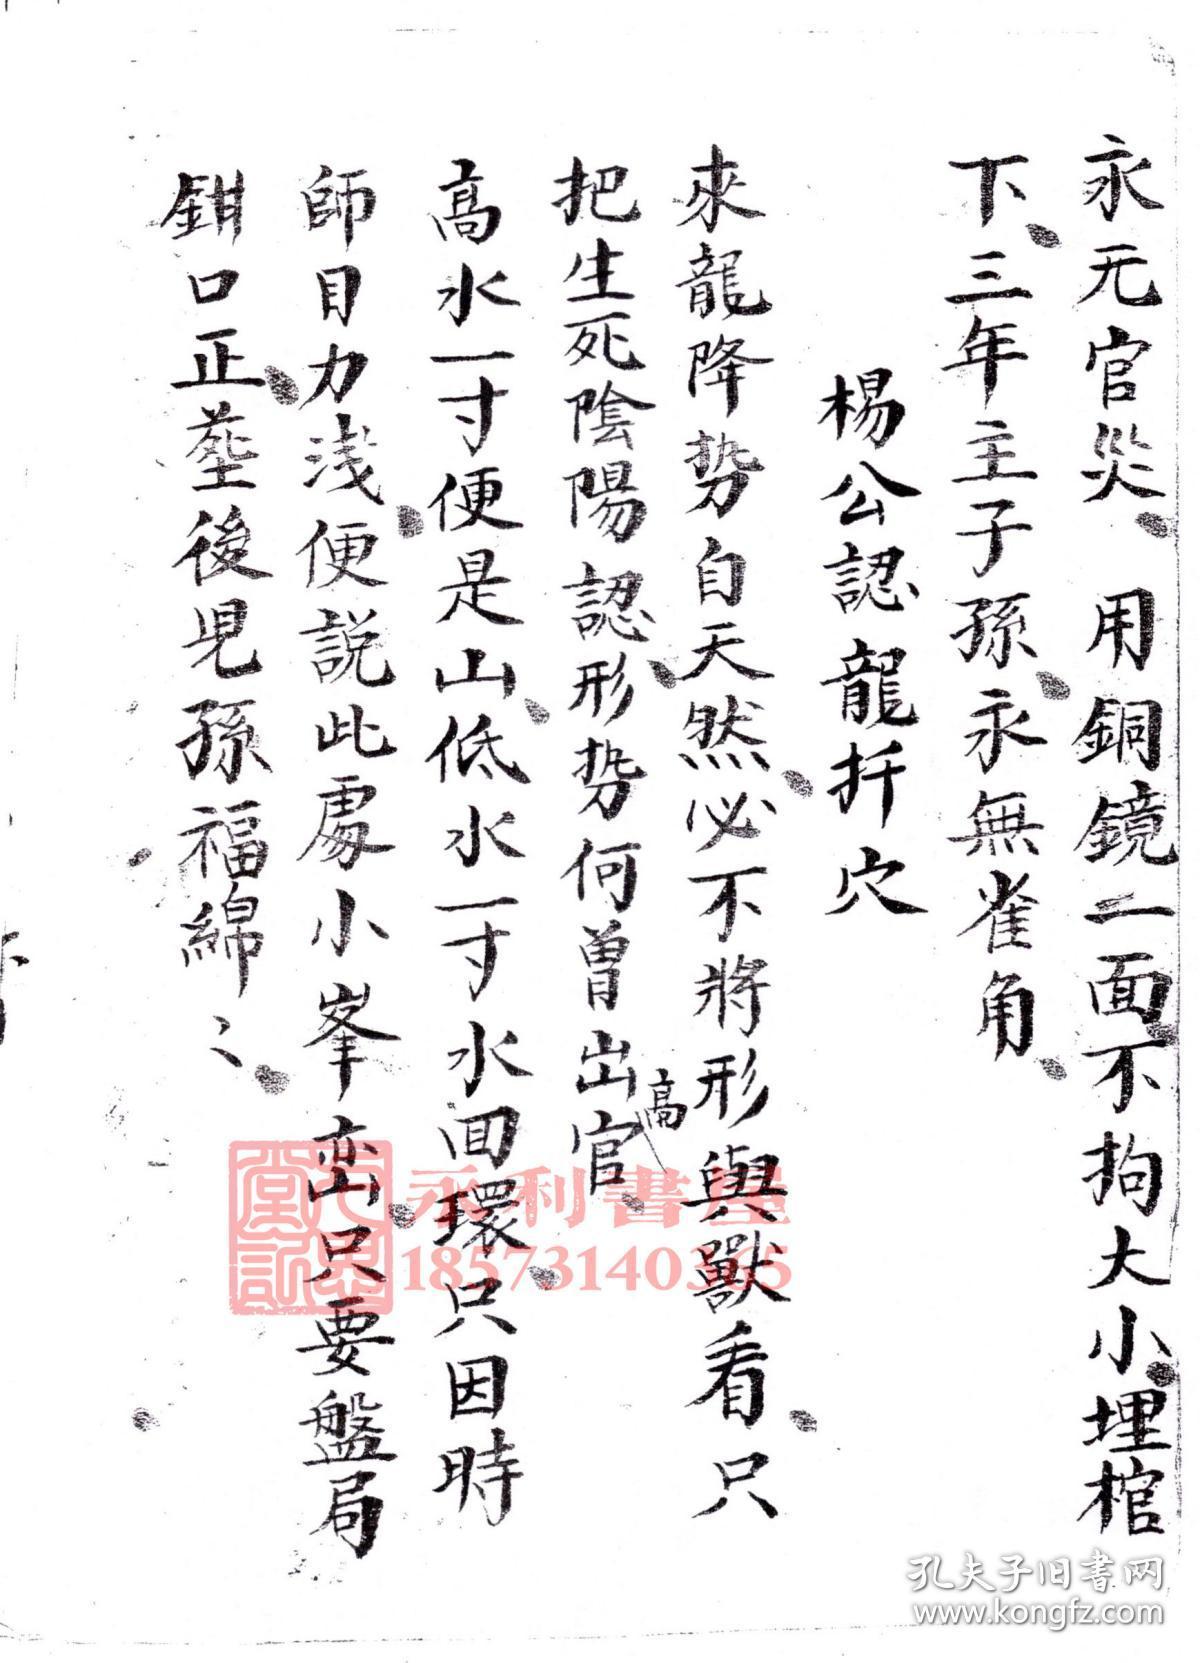 永元官災 用銅鏡二面不拘大小埋棺
下三年主子孫永無雀角
楊公認龍扦穴
來龍降势自天然必不將形與獸看只
把生死陰陽認形势何曾出官
高
高水一寸便是山低水一寸水回環只因時
師目力浅便説此處小峯峦只要盤局
鉗口正塟後児孫福綿〻
永利書屋
18573140365
孔夫子旧书网
www.kongfz.com